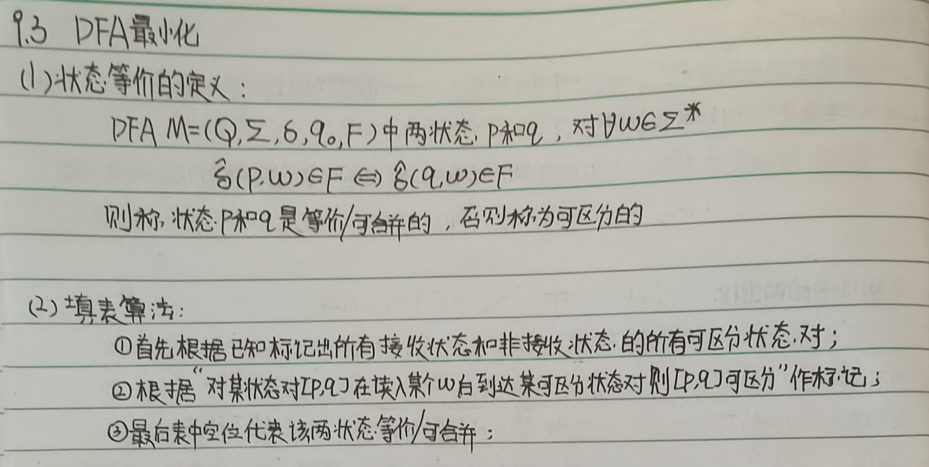 9.3 DFA最小化
(1)状态等价的定义：
DFA M=(Q,Σ,δ,q₀,F)中两状态p和q，对∀w∈Σ*
δ̂(p,w)∈F⇔δ̂(q,w)∈F
则称状态p和q是等价/可合并的，否则称为可区分的
(2)填表算法：
①首先根据已知标记出所有接收状态和非接收状态的所有可区分状态对；
②根据“对某状态对[p,q]在读入某个w后到达某可区分状态对则[p,q]可区分”作标记；
③最后表中空位代表该两状态等价/可合并；